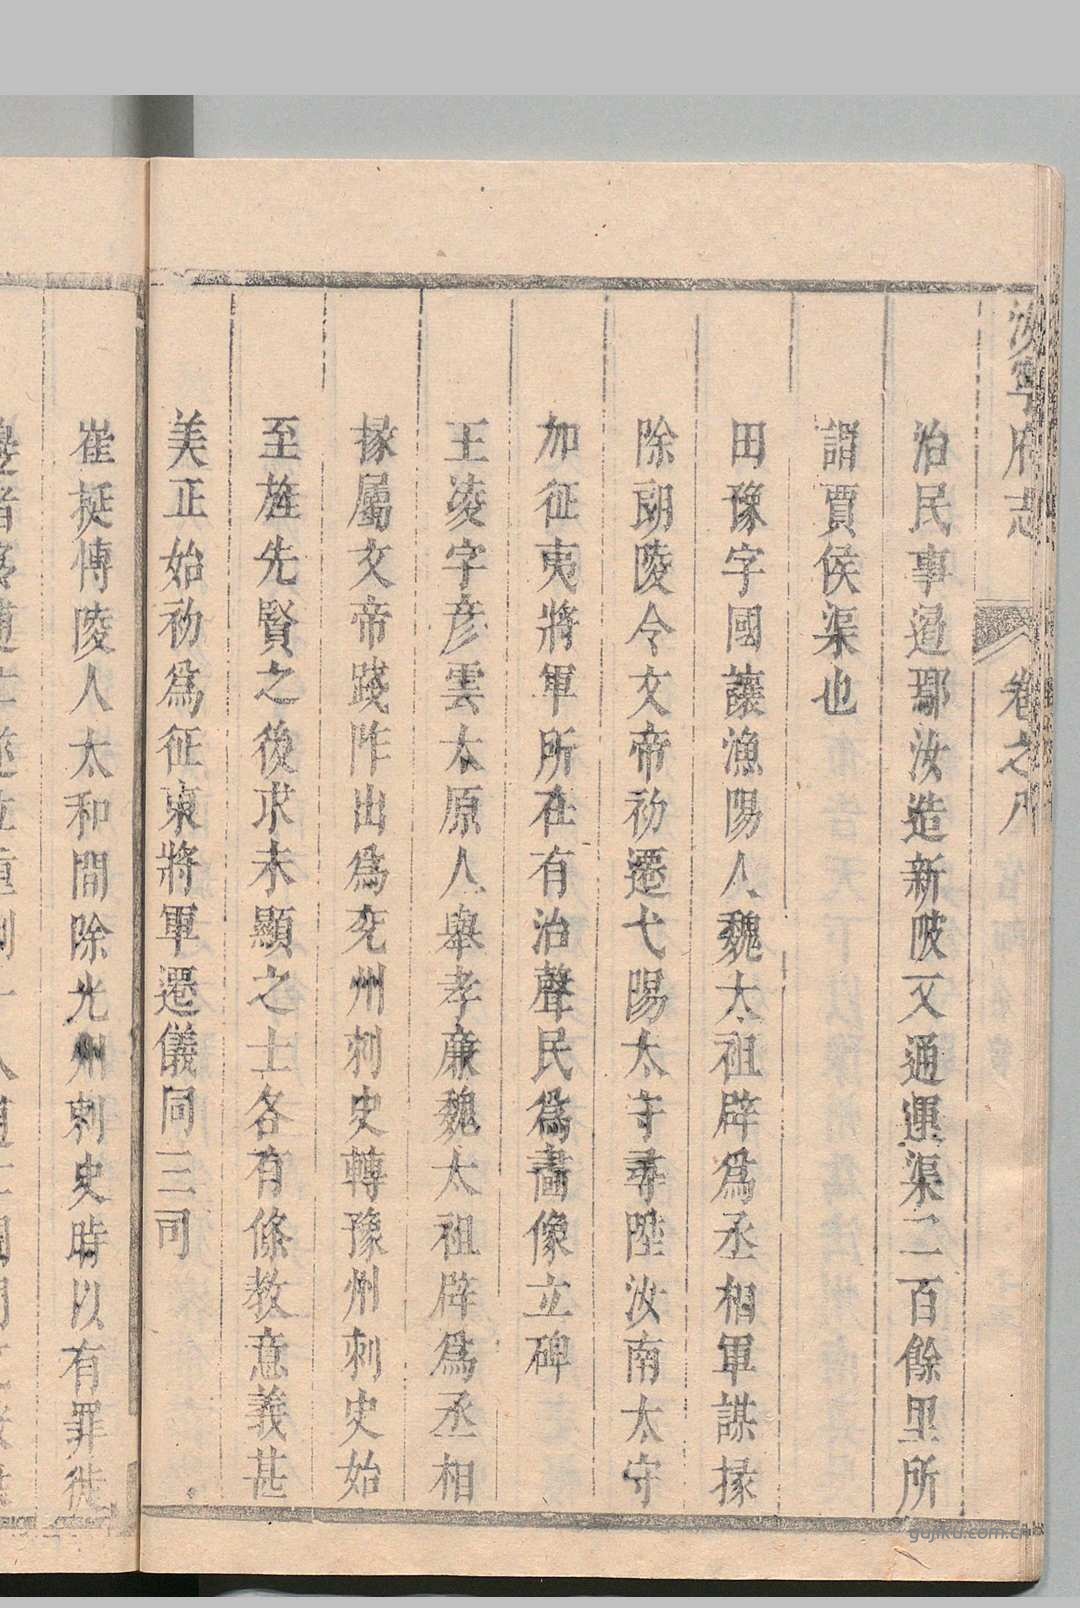 汝寧府志
卷之八
治民事遏鄢汝造新陂又通運渠二百餘里所
謂賈侯渠也
田豫字國讓漁陽人魏太祖辟爲丞相軍謀掾
除朗陵令文帝初遷弋陽太守尋陞汝南太守
加征夷將軍所在有治聲民爲畵像立碑
王凌字彦雲太原人舉孝廉魏太祖辟爲丞相
掾屬文帝踐阼出爲兖州刺史轉豫州刺史始
至旌先賢之後求未顯之士各有條教意義甚
美正始初爲征東將軍遷儀同三司
崔挺愽陵人太和間除光州刺史時以有罪徙
gujiku.com.cn